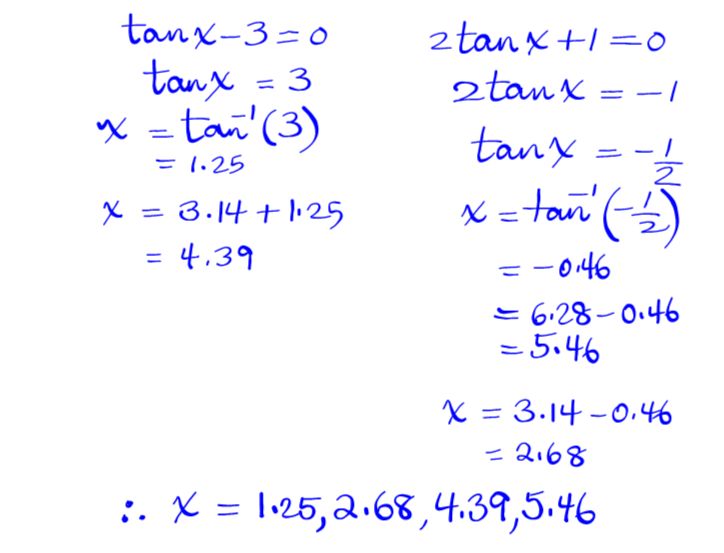 tanx-3=0
tanx = 3
x = tan⁻¹(3)
= 1.25
x = 3.14+1.25
= 4.39
2tanx+1=0
2tanx = -1
tanx = -1/2
x = tan⁻¹(-1/2)
= -0.46
= 6.28-0.46
= 5.46
x = 3.14-0.46
= 2.68
∴ x = 1.25, 2.68, 4.39, 5.46